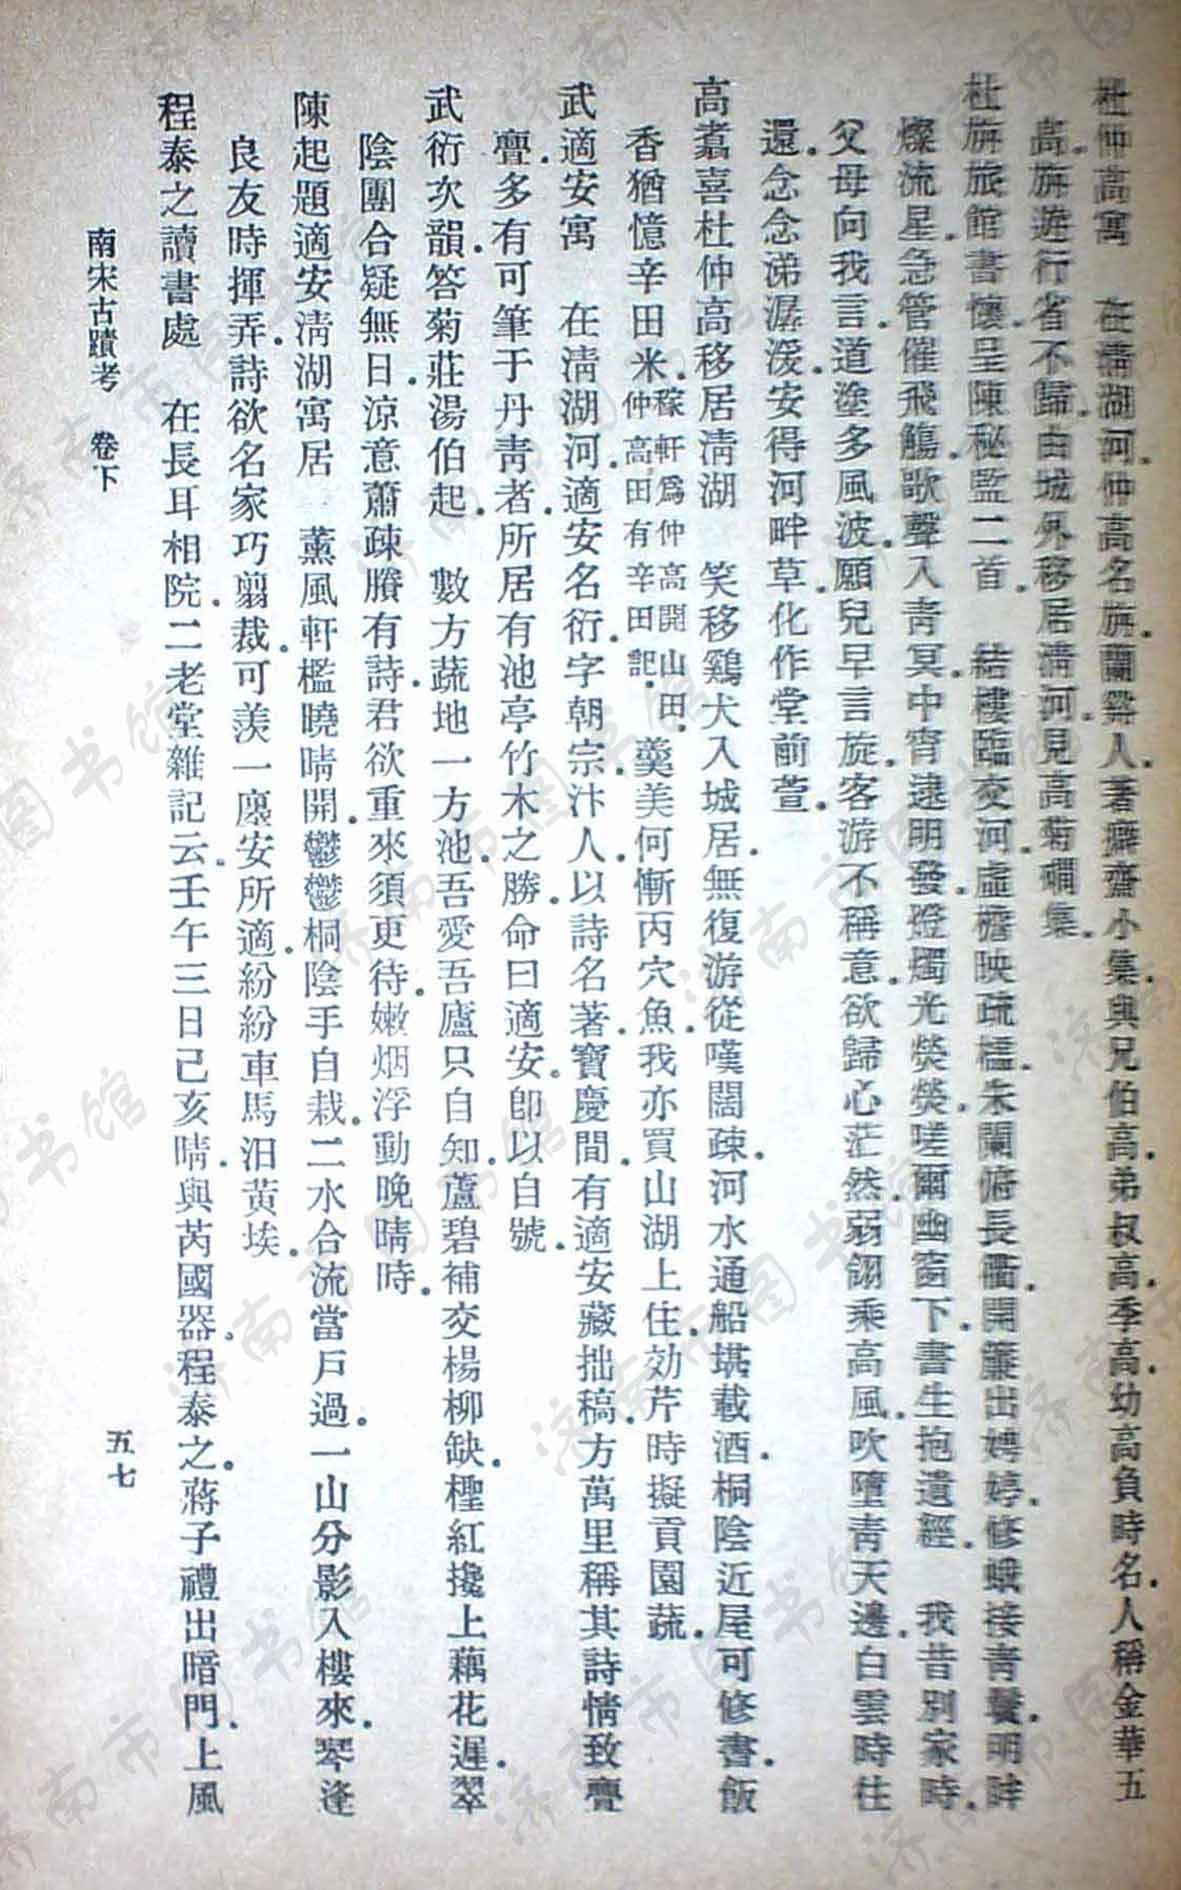 杜仲高寓　在清湖河．仲高名旃．蘭谿人．著癖齋小集．與兄伯高．弟叔高．季高．幼高負時名．人稱金華五
高．旃遊行省不歸．由城外移居清河．見高菊磵集．
杜旃旅館書懷．呈陳秘監二首．　結樓臨交河．虛檐映疏櫺．朱闌俯長衢．開簾出娉婷．修蛾接青鬢．明眸
燦流星．急管催飛觴．歌聲入青冥．中宵逮明發．燈燭光熒熒．嗟爾幽窗下．書生抱遺經．　我昔別家時．
父母向我言．道塗多風波．願兒早言旋．客游不稱意．欲歸心茫然．弱翮乘高風．吹墮青天邊．白雲時往
還．念念涕潺湲．安得河畔草．化作堂前萱．
高翥喜杜仲高移居清湖　笑移鷄犬入城居．無復游從嘆闊疎．河水通船堪載酒．桐陰近屋可修書．飯
香猶憶辛田米．稼軒爲仲高開山田．仲高田有辛田記．羹美何慚丙穴魚．我亦買山湖上住．効芹時擬貢園蔬．
武適安寓　在清湖河．適安名衍．字朝宗．汴人．以詩名著．寶慶間．有適安藏拙稿．方萬里稱其詩情致亹
亹．多有可筆于丹青者．所居有池亭竹木之勝．命曰適安．卽以自號．
武衍次韻．答菊莊湯伯起．　數方蔬地一方池．吾愛吾廬只自知．蘆碧補交楊柳缺．檉紅攙上藕花遲．翠
陰團合疑無日．涼意蕭疎賸有詩．君欲重來須更待．嫩烟浮動晚晴時．
陳起題適安清湖寓居　薰風軒檻曉晴開．鬱鬱桐陰手自栽．二水合流當戶過．一山分影入樓來．琴逢
良友時揮弄．詩欲名家巧翦裁．可羨一廛安所適．紛紛車馬汨黃埃．
程泰之讀書處　在長耳相院．二老堂雜記云．壬午三日己亥晴．與芮國器．程泰之．蔣子禮出暗門．上風
南宋古蹟考　卷下　五七